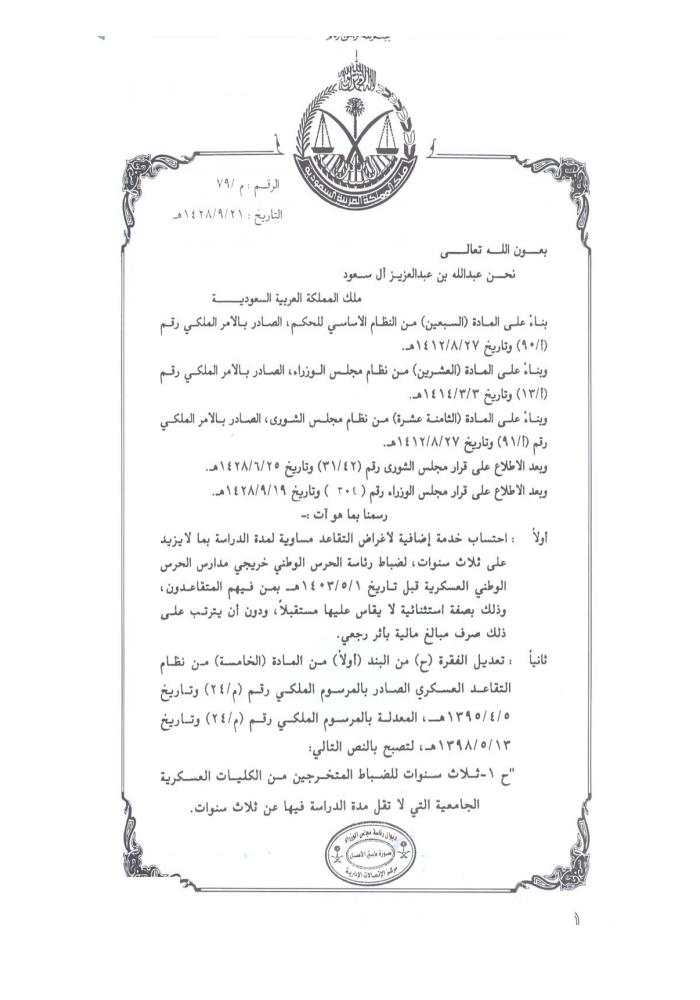 ملك المملكة العربية السعودية
الرقم : م /٧٩
التاريخ : ١٤٢٨/٩/٢١هـ
بعون الله تعالى
نحن عبدالله بن عبدالعزيز آل سعود
ملك المملكة العربية السعودية
بناءً على المادة (السبعين) من النظام الأساسي للحكم، الصادر بالأمر الملكي رقم
(أ/٩٠) وتاريخ ١٤١٢/٨/٢٧هـ.
وبناءً على المادة (العشرين) من نظام مجلس الوزراء، الصادر بالأمر الملكي رقم
(أ/١٣) وتاريخ ١٤١٤/٣/٣هـ.
وبناءً على المادة (الثامنة عشرة) من نظام مجلس الشورى، الصادر بالأمر الملكي
رقم (أ/٩١) وتاريخ ١٤١٢/٨/٢٧هـ.
وبعد الاطلاع على قرار مجلس الشورى رقم (٣١/٤٢) وتاريخ ١٤٢٨/٦/٢٥هـ.
وبعد الاطلاع على قرار مجلس الوزراء رقم ( ٣٠٤ ) وتاريخ ١٤٢٨/٩/١٩هـ.
رسمنا بما هو آت :-
أولاً : احتساب خدمة إضافية لأغراض التقاعد مساوية لمدة الدراسة بما لايزيد
على ثلاث سنوات، لضباط رئاسة الحرس الوطني خريجي مدارس الحرس
الوطني العسكرية قبل تاريخ ١٤٠٣/٥/١هـ بمن فيهم المتقاعدون،
وذلك بصفة استثنائية لا يقاس عليها مستقبلاً، ودون أن يترتب على
ذلك صرف مبالغ مالية بأثر رجعي.
ثانياً : تعديل الفقرة (ح) من البند (أولاً) من المادة (الخامسة) من نظام
التقاعد العسكري الصادر بالمرسوم الملكي رقم (م/٢٤) وتاريخ
١٣٩٥/٤/٥هـ، المعدلة بالمرسوم الملكي رقم (م/٢٤) وتاريخ
١٣٩٨/٥/١٣هـ، لتصبح بالنص التالي:
"ح ١-ثلاث سنوات للضباط المتخرجين من الكليات العسكرية
الجامعية التي لا تقل مدة الدراسة فيها عن ثلاث سنوات.
ديوان رئاسة مجلس الوزراء
صورة طبق الأصل
مركز الإتصالات الإدارية